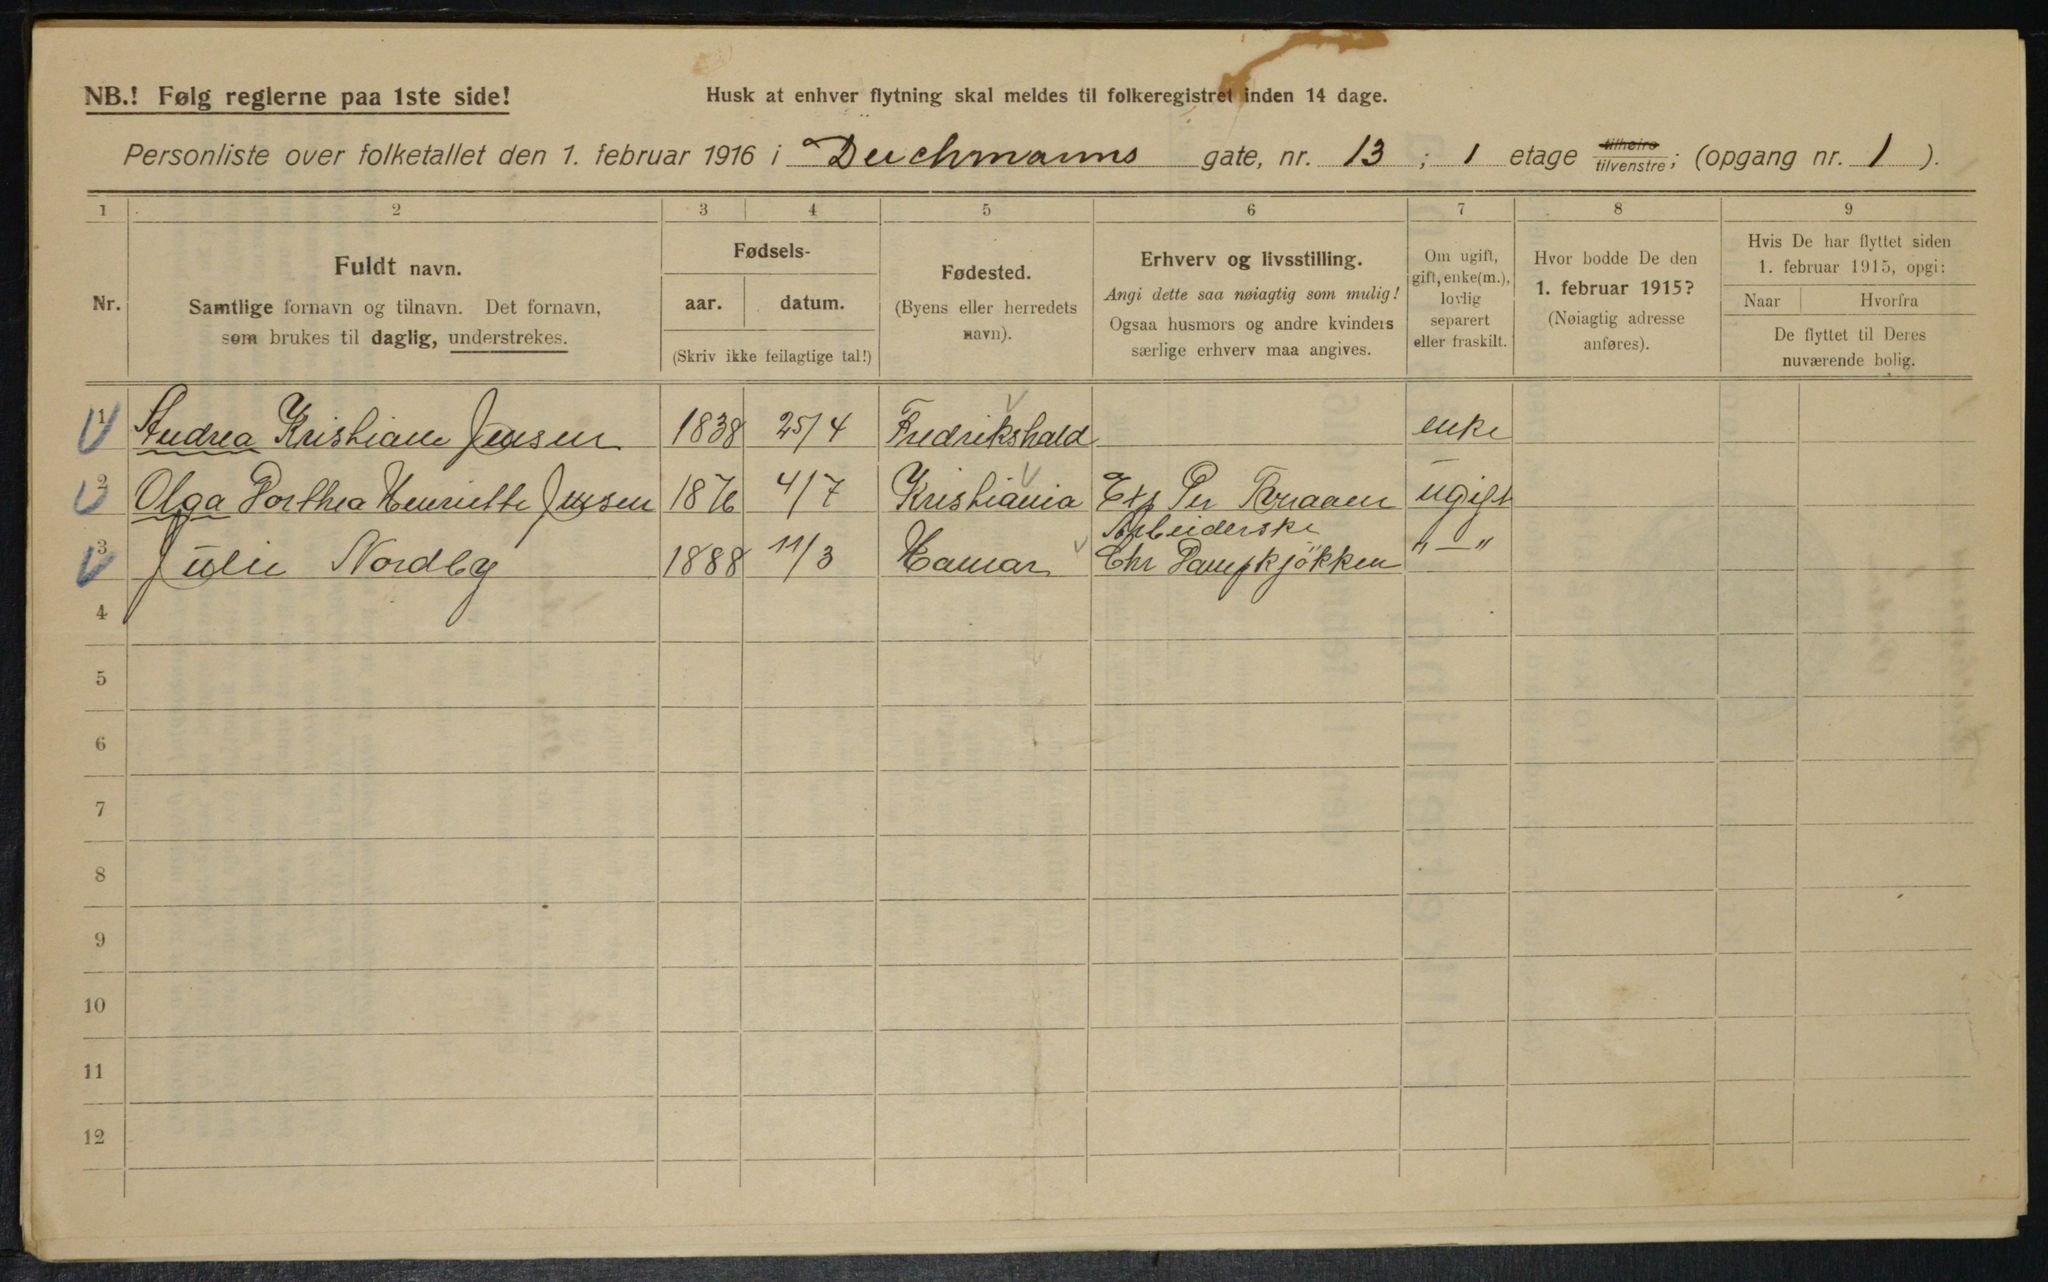 NB.! Følg reglerne paa 1ste side!
Husk at enhver flytning skal meldes til folkeregistret inden 14 dage.
Personliste over folketallet den 1. februar 1916 i Deichmanns gate, nr. 13 ; 1 etage tilhøire tilvenstre; (opgang nr. 1 ).
1 2 3 4 5 6 7 8 9
Nr.
Fuldt navn.
Samtlige fornavn og tilnavn. Det fornavn,
som brukes til daglig, understrekes.
Fødsels-
aar. datum.
(Skriv ikke feilagtige tal!)
Fødested.
(Byens eller herredets
navn).
Erhverv og livsstilling.
Angi dette saa nøiagtig som mulig!
Ogsaa husmors og andre kvinders
særlige erhverv maa angives.
Om ugift,
gift, enke(m.),
lovlig
separert
eller fraskilt.
Hvor bodde De den
1. februar 1915?
(Nøiagtig adresse
anføres).
Hvis De har flyttet siden
1. februar 1915, opgi:
Naar Hvorfra
De flyttet til Deres
nuværende bolig.
1 Andrea Kristiane Jensen 1838 25/4 Fredrikshald enke
2 Olga Dorthea Henriette Jensen 1876 4/7 Kristiania Per ugift
3 Julie Nordby 1888 11/3 Hamar Arbeiderske
Chr Dampkjökken "—"
4
5
6
7
8
9
10
11
12